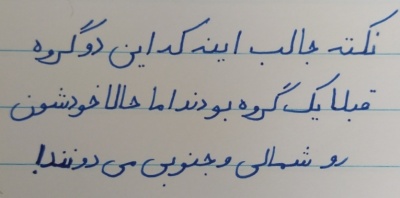 نکته جالب اینه که این دو گروه
قبلا یک گروه بودند اما حالا خودشون
رو شمالی و جنوبی می دونند!